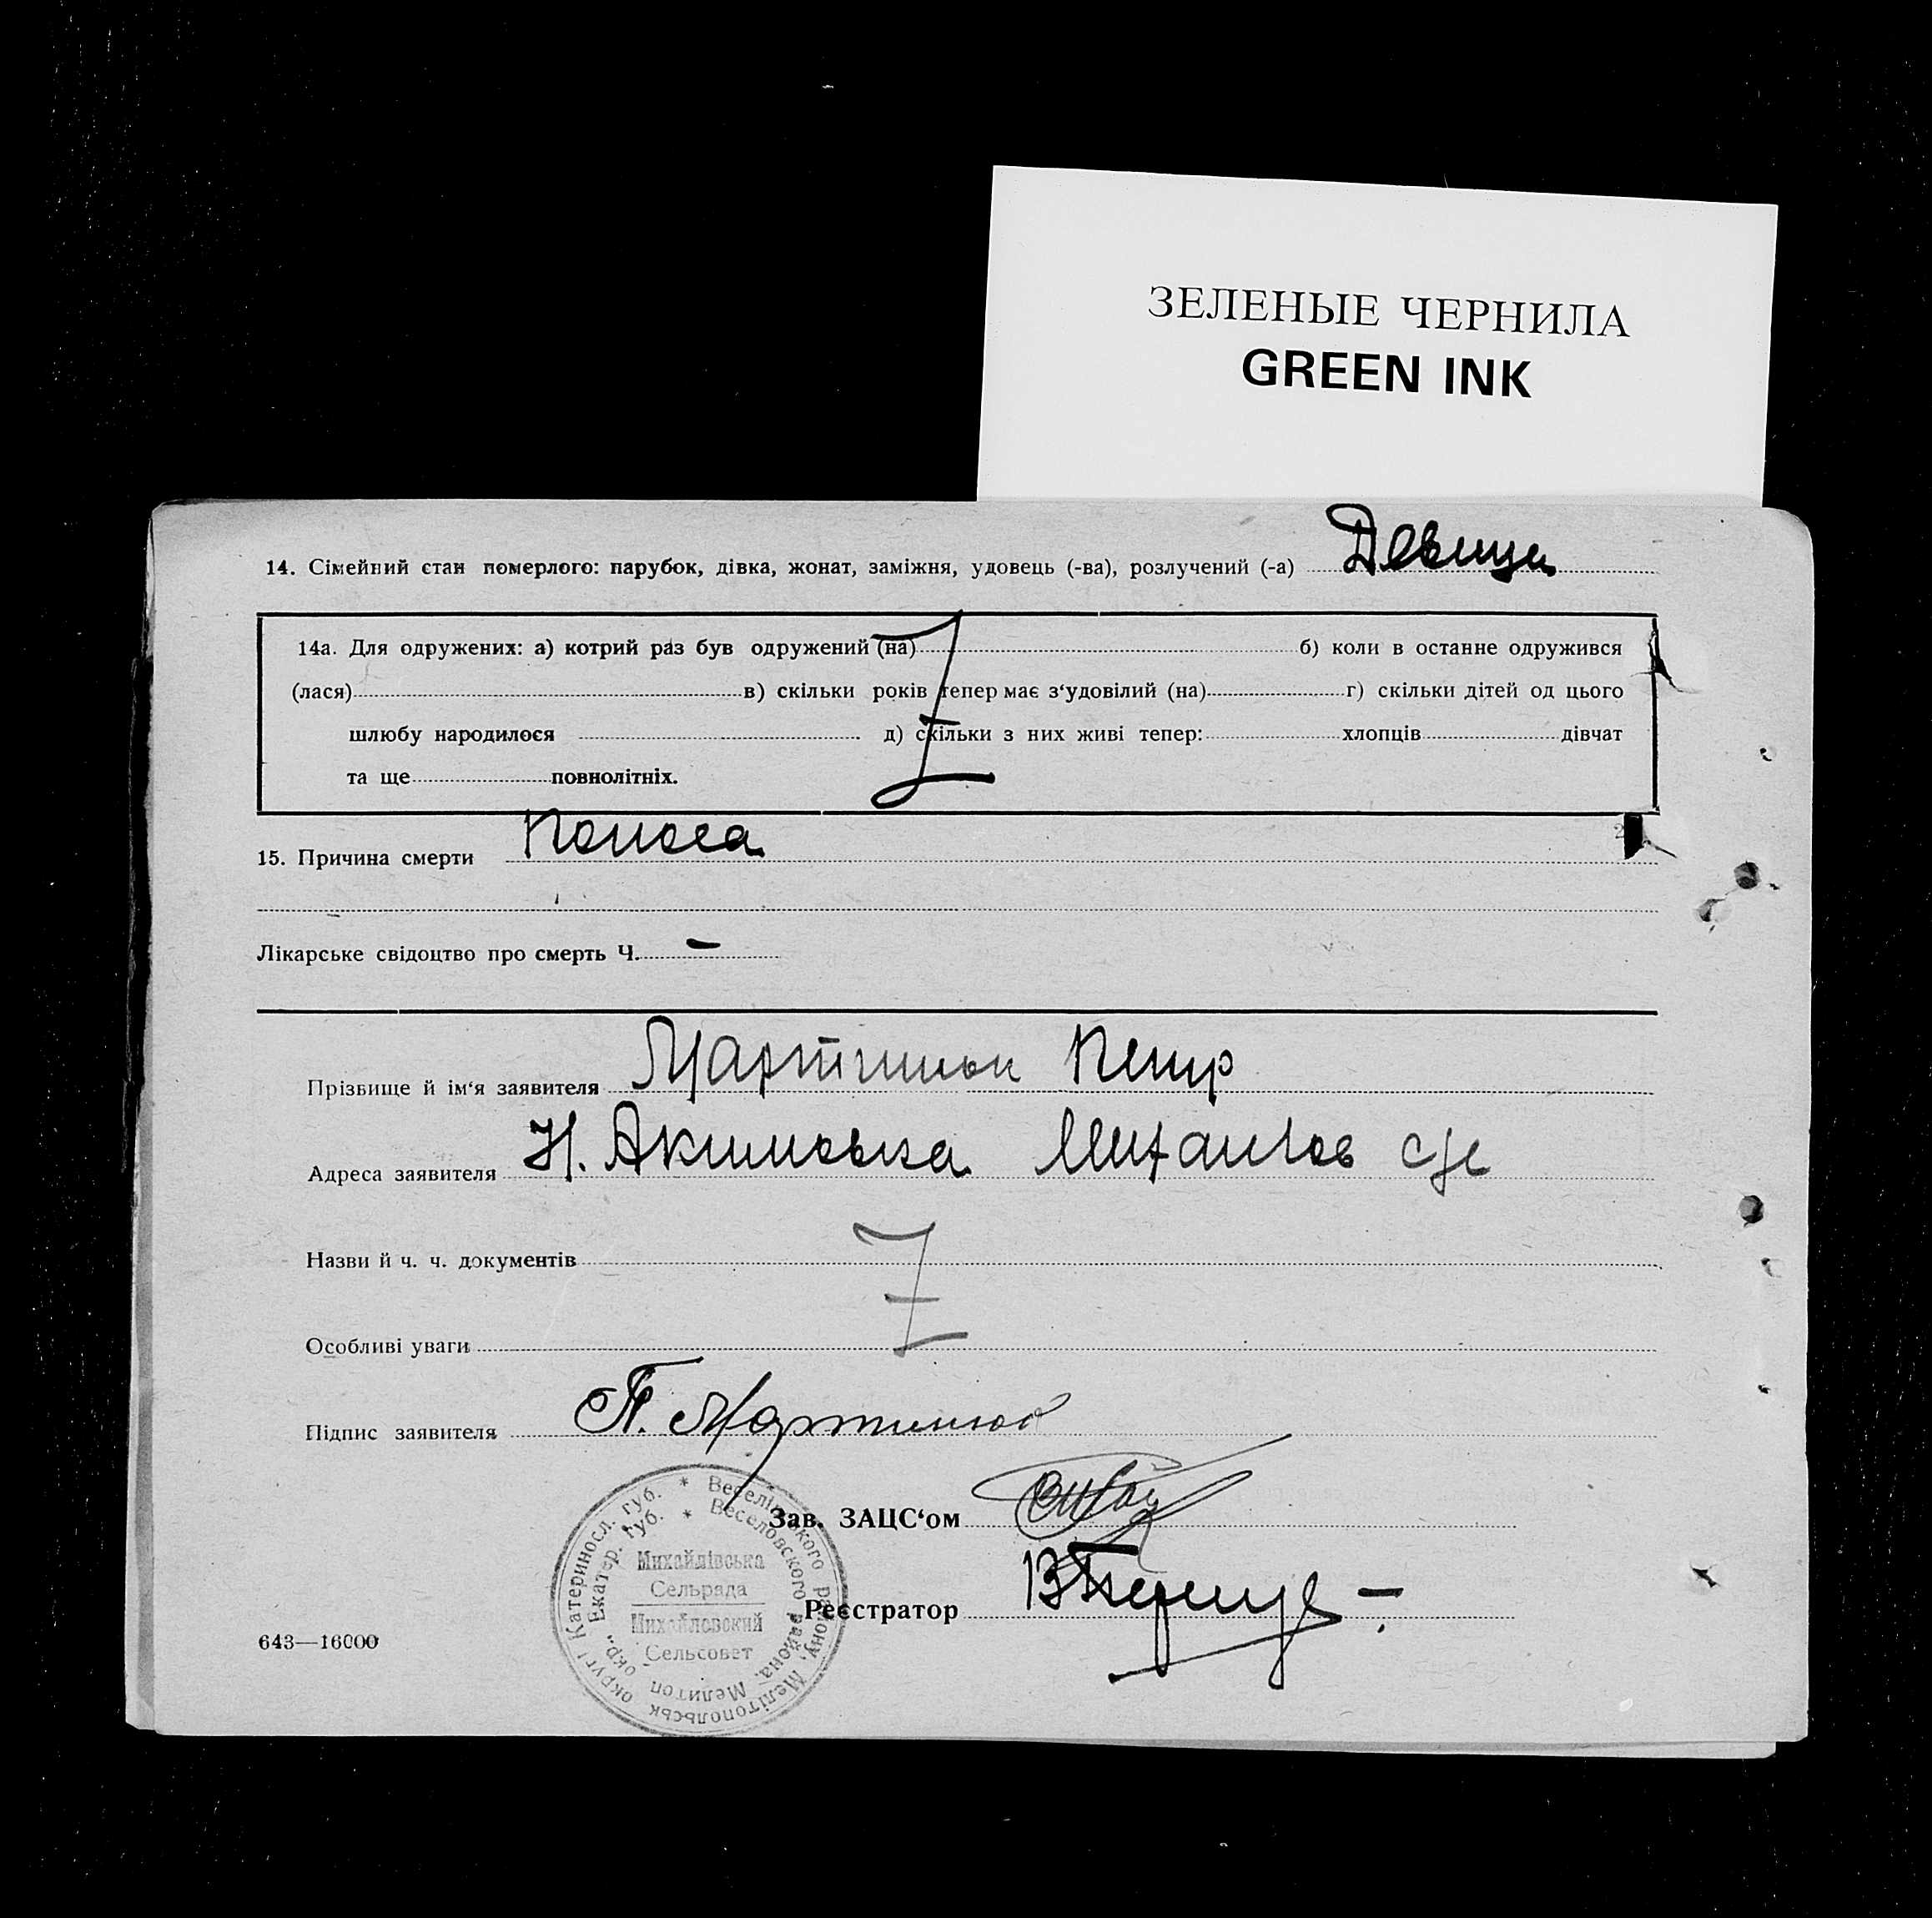 ЗЕЛЕНЫЕ ЧЕРНИЛА
GREEN INK
14. Сімейний стан померлого: парубок, дівка, жонат, заміжня, удовець (-ва), розлучений (-а) Девица
14а. Для одружених: а) котрий раз був одружений (на) б) коли в останне одружився
(лася) в) скільки років тепер має з‘удовілий (на) г) скільки дітей од цього
шлюбу народилося д) скільки з них живі тепер: хлопців дівчат
та ще повнолітніх.
15. Причина смерти Поноса
Лікарське свідоцтво про смерть Ч. –
Прізвище й ім‘я заявителя Мартинюк Петр
Адреса заявителя Н. Акимовка Михайлов с/с
Назви й ч. ч. документів
Особливі уваги
Підпис заявителя П. Мартинюк
Зав. ЗАЦС‘ом
Реєстратор
Катериносл. губ. * Веселівського району, Мелітопольськ округ
Екатер. губ. * Веселовского района, Мелитоп окр.
Михайлівська
Сельрада
Михайловский
Сельсовет
643—16000